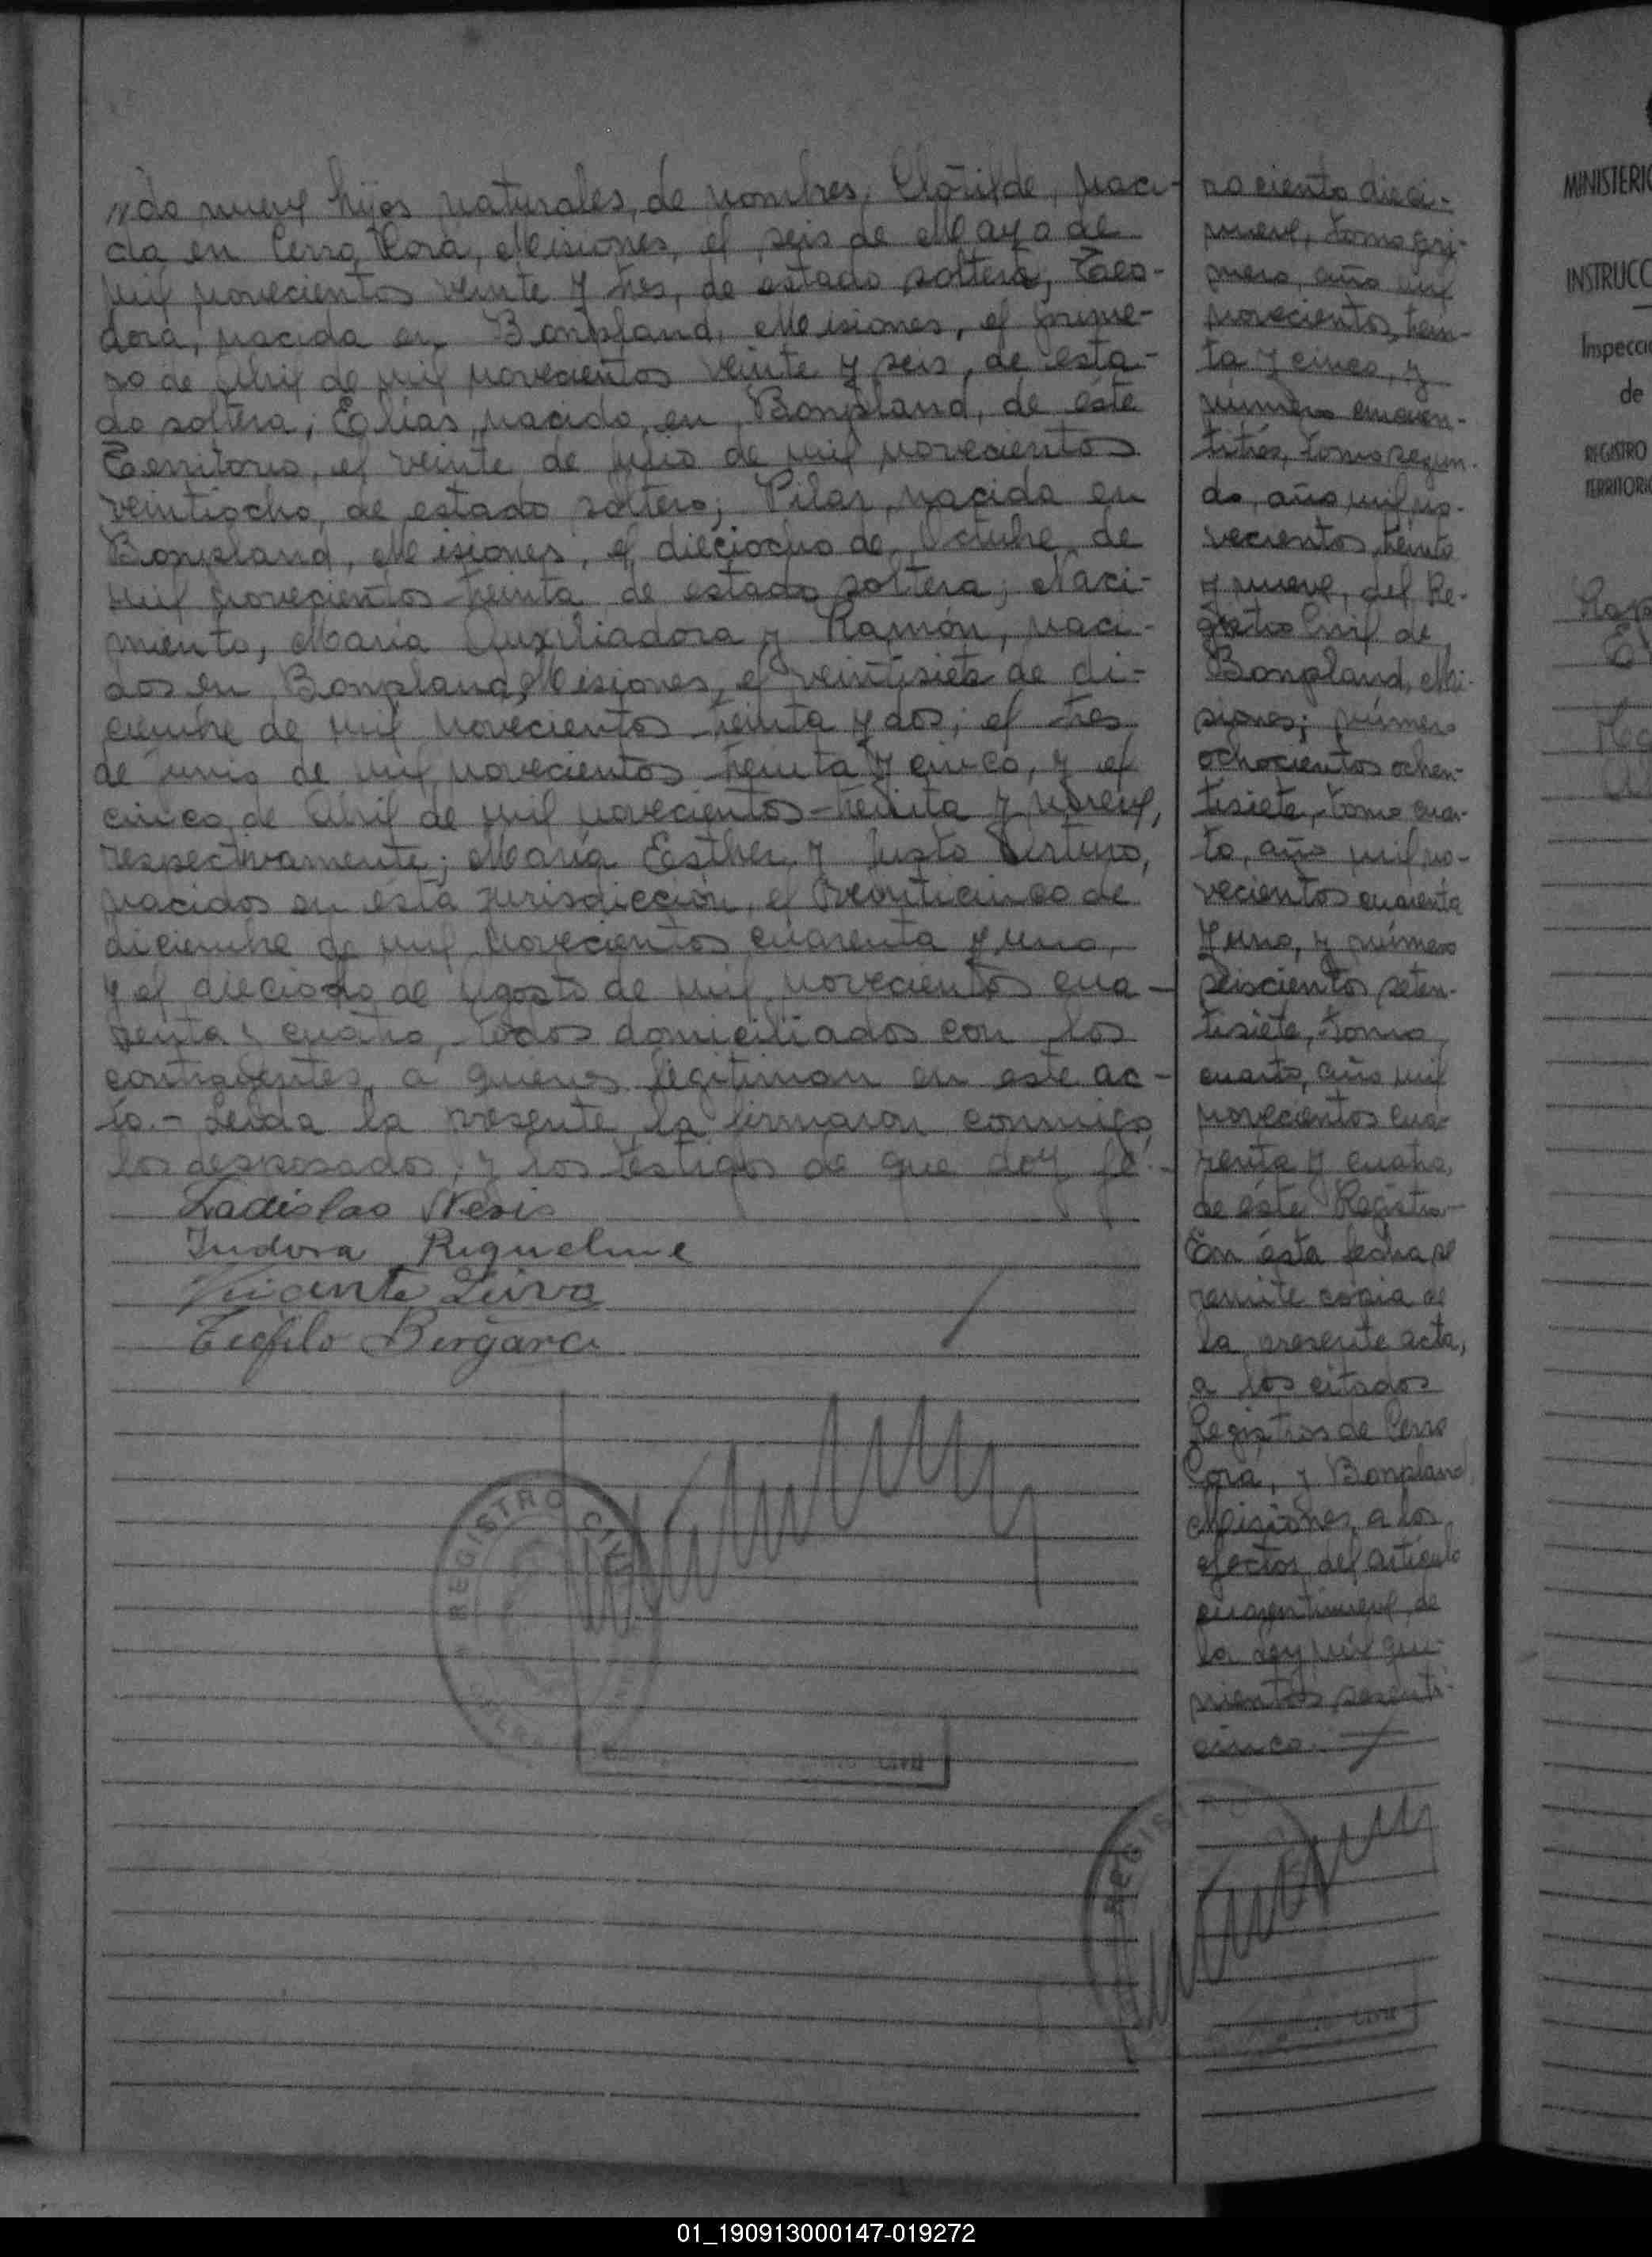 //do nueve hijos naturales, de nombres: Clotilde, naci-
da en Cerro Corá, Misiones, el seis de Mayo de
mil novecientos veinte y tres, de estado soltera; Teo-
dora, nacida en Bonpland, Misiones, el prime-
ro de Abril de mil novecientos veinte y seis, de esta-
do soltera; Elías, nacido en Bonpland, de éste
Territorio, el veinte de Julio de mil novecientos
veintiocho, de estado soltero; Pilar, nacida en
Bonpland, Misiones, el dieciocho de Octubre de
mil novecientos treinta de estado soltera; Naci-
miento, María Auxiliadora y Ramón, naci-
dos en Bonpland, Misiones, el veintisiete de di-
ciembre de mil novecientos treinta y dos; el tres
de Junio de mil novecientos treinta y cinco, y el
cinco de Abril de mil novecientos treinta y nueve,
respectivamente; María Esther y Justo
nacidos en ésta jurisdicción, el veinticinco de
diciembre de mil novecientos cuarenta y uno,
y el dieciocho de Agosto de mil novecientos cua-
renta y cuatro, todos domiciliados con los
contrayentes, a quienes legitiman en este ac-
to.- Leída la presente, la firmaron conmigo,
los desposados, y los testigos de que doy fé.-
Ladislao Neris
Indora Riquelme
Vicente Leiva
Teofilo Bergara
REGISTRO CIVIL
CIVIL
ro ciento dieci-
nueve, tomo pri-
mero, año mil
novecientos trein-
ta y cinco, y
número cuaren-
titrés, tomo segun-
do, año mil no-
vecientos treinta
y nueve, del Re-
gistro Civil de
Bonpland, Mi-
siones; número
ochocientos ochen-
tisiete, tomo cuar-
to, año mil no-
vecientos cuarenta
y uno, y número
seiscientos seten-
tisiete, tomo
cuarto, año mil
novecientos cua-
renta y cuatro,
de éste Registro.-
En ésta fecha se
remite copia de
la presente acta,
a los citados
Registros de Cerro
Corá, y Bonpland
Misiones, a los
efectos del artículo
cuarentinueve, de
la Ley mil qui-
nientos sesenti-
cinco.-
REGISTRO
CIVIL
MINISTERIO
INSTRUCC
Inspecci
de
REGISTRO
TERRITORI
01_190913000147-019272